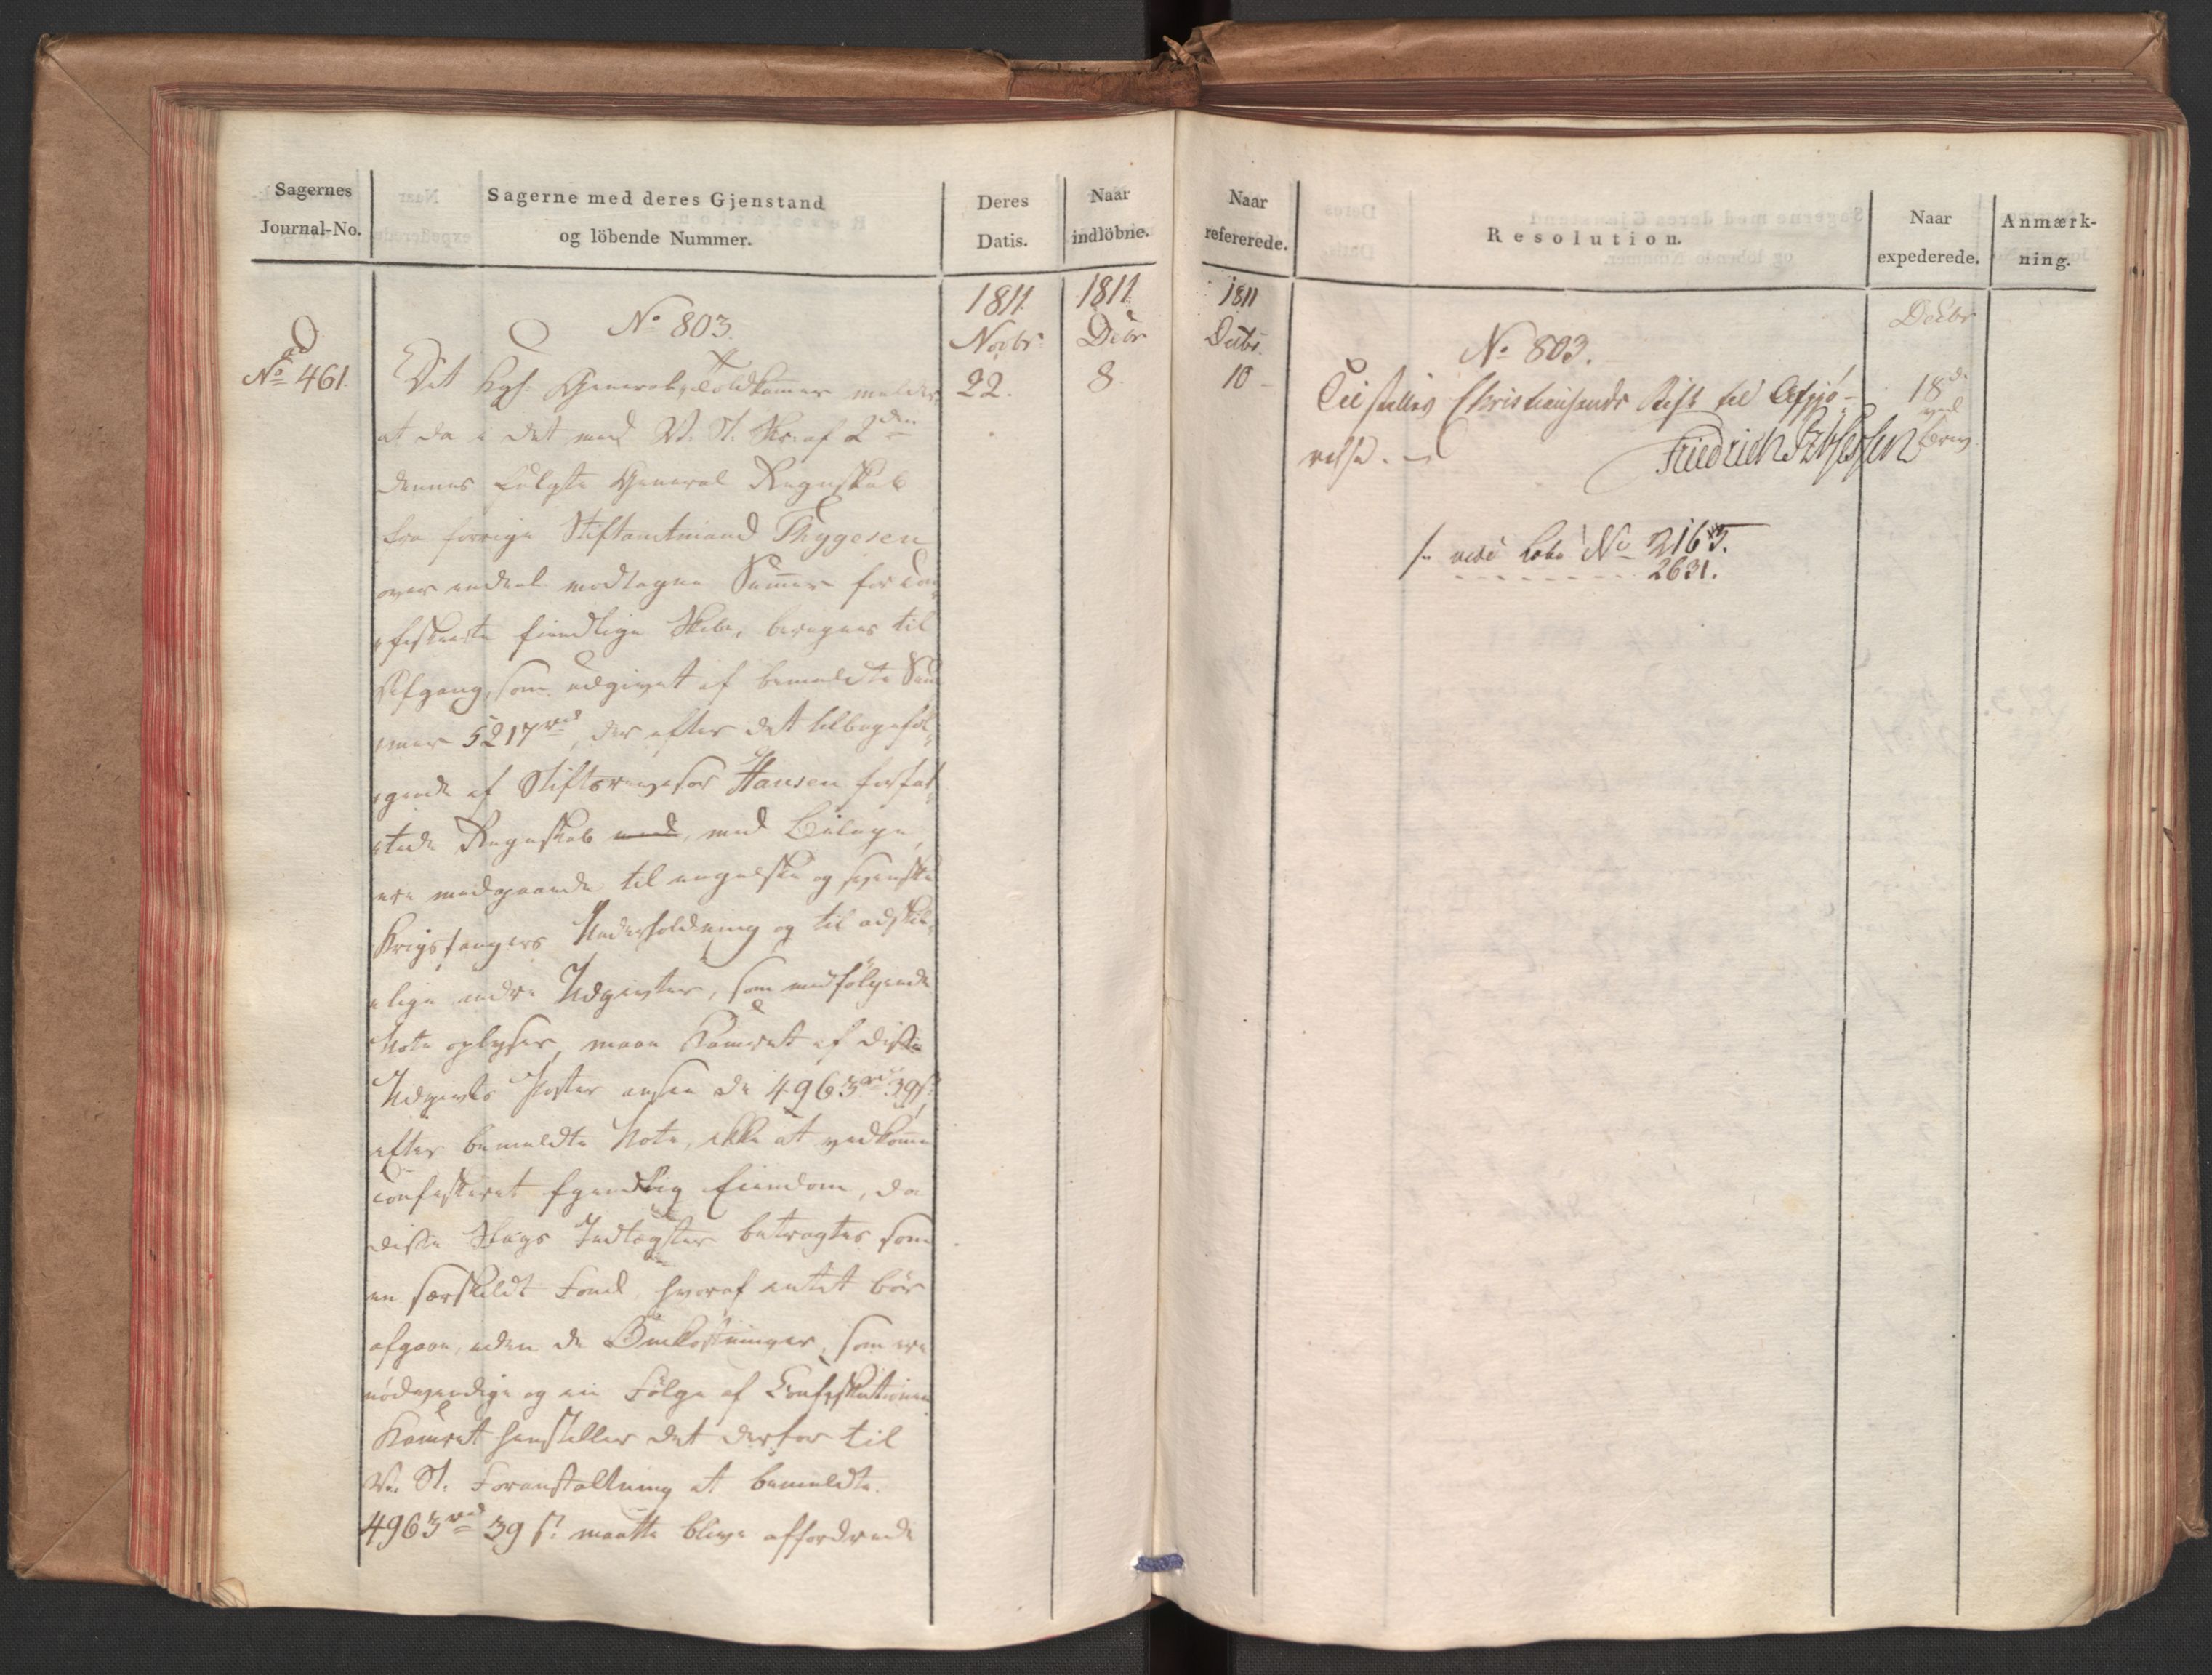 Sagernes
Journal-No.
Sagerne med deres Gjenstand
og löbende Nummer.
Deres
Datis.
Naar
indlöbne.
1811
Novbr
22.
1811
Decbr
8.
ad
No 461.
No 803.
Det Kgl. General Toldkamer melder,
at da i det med V. St. Skr. af 2den
dennes fulgte General Regnskab
fra forrige Stiftamtmand Thygesen
over endeel modtagne Summer for con¬
fiskerte fiendtlige Skibe, beregnes til
Afgang, som udgivet af bemeldte Sum¬
mer 5217 rd, der efter det tilbageføl¬
gende af Stiftsrevisor Hansen forfat¬
tede Regnskab med, med Bilage,
ere medgaaede til engelske og svenske
Krigsfangers Underholdning og til adskil¬
lige andre Udgivter, som medfølgende
Note oplyser, maae Kameret af disse
Udgivts Poster ansee de 4963 rd 39 s
efter bemeldte Note, ikke at vedkomme
confiskeret fiendtlig Eiendom, da
disse Slags Indtægter betragtes som
en særskildt Fond, hvoraf intet bør
afgaae, uden de Omkostninger, som ere
nødvendige og en Følge af Confiskationen
Kameret henstiller det derfor til
V. St. Foranstaltning at bemeldte
4963 rd 39 s. maatte blive affordrede
Naar
refererede.
Resolution.
Naar
expederede.
Anmærk-
ning.
1811
Decbr.
10
No 803.
Tilstilles Christiansands Stift til Afgjö¬
relse.
Friedrich
Decbr
18de
ved
/: vide Lobe No 2163.
2631.